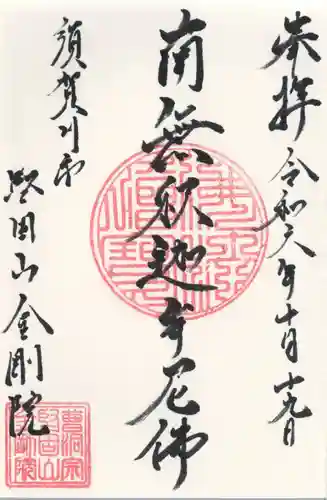 奉拝 令和六年十月十九日
南無釈迦牟尼佛
須賀川市
堅田山 金剛院
曹洞宗
堅田山